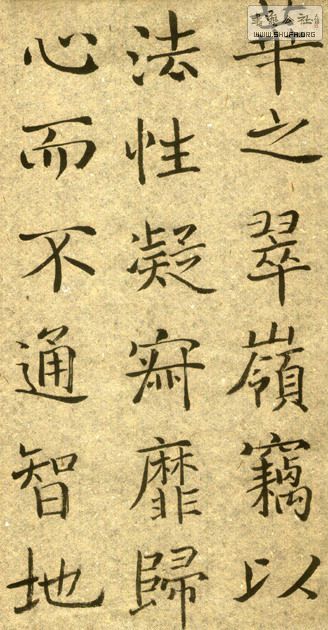 華之翠嶺竊以
法性凝寂靡歸
心而不通智地
書法公社
WWW.SHUFA.ORG